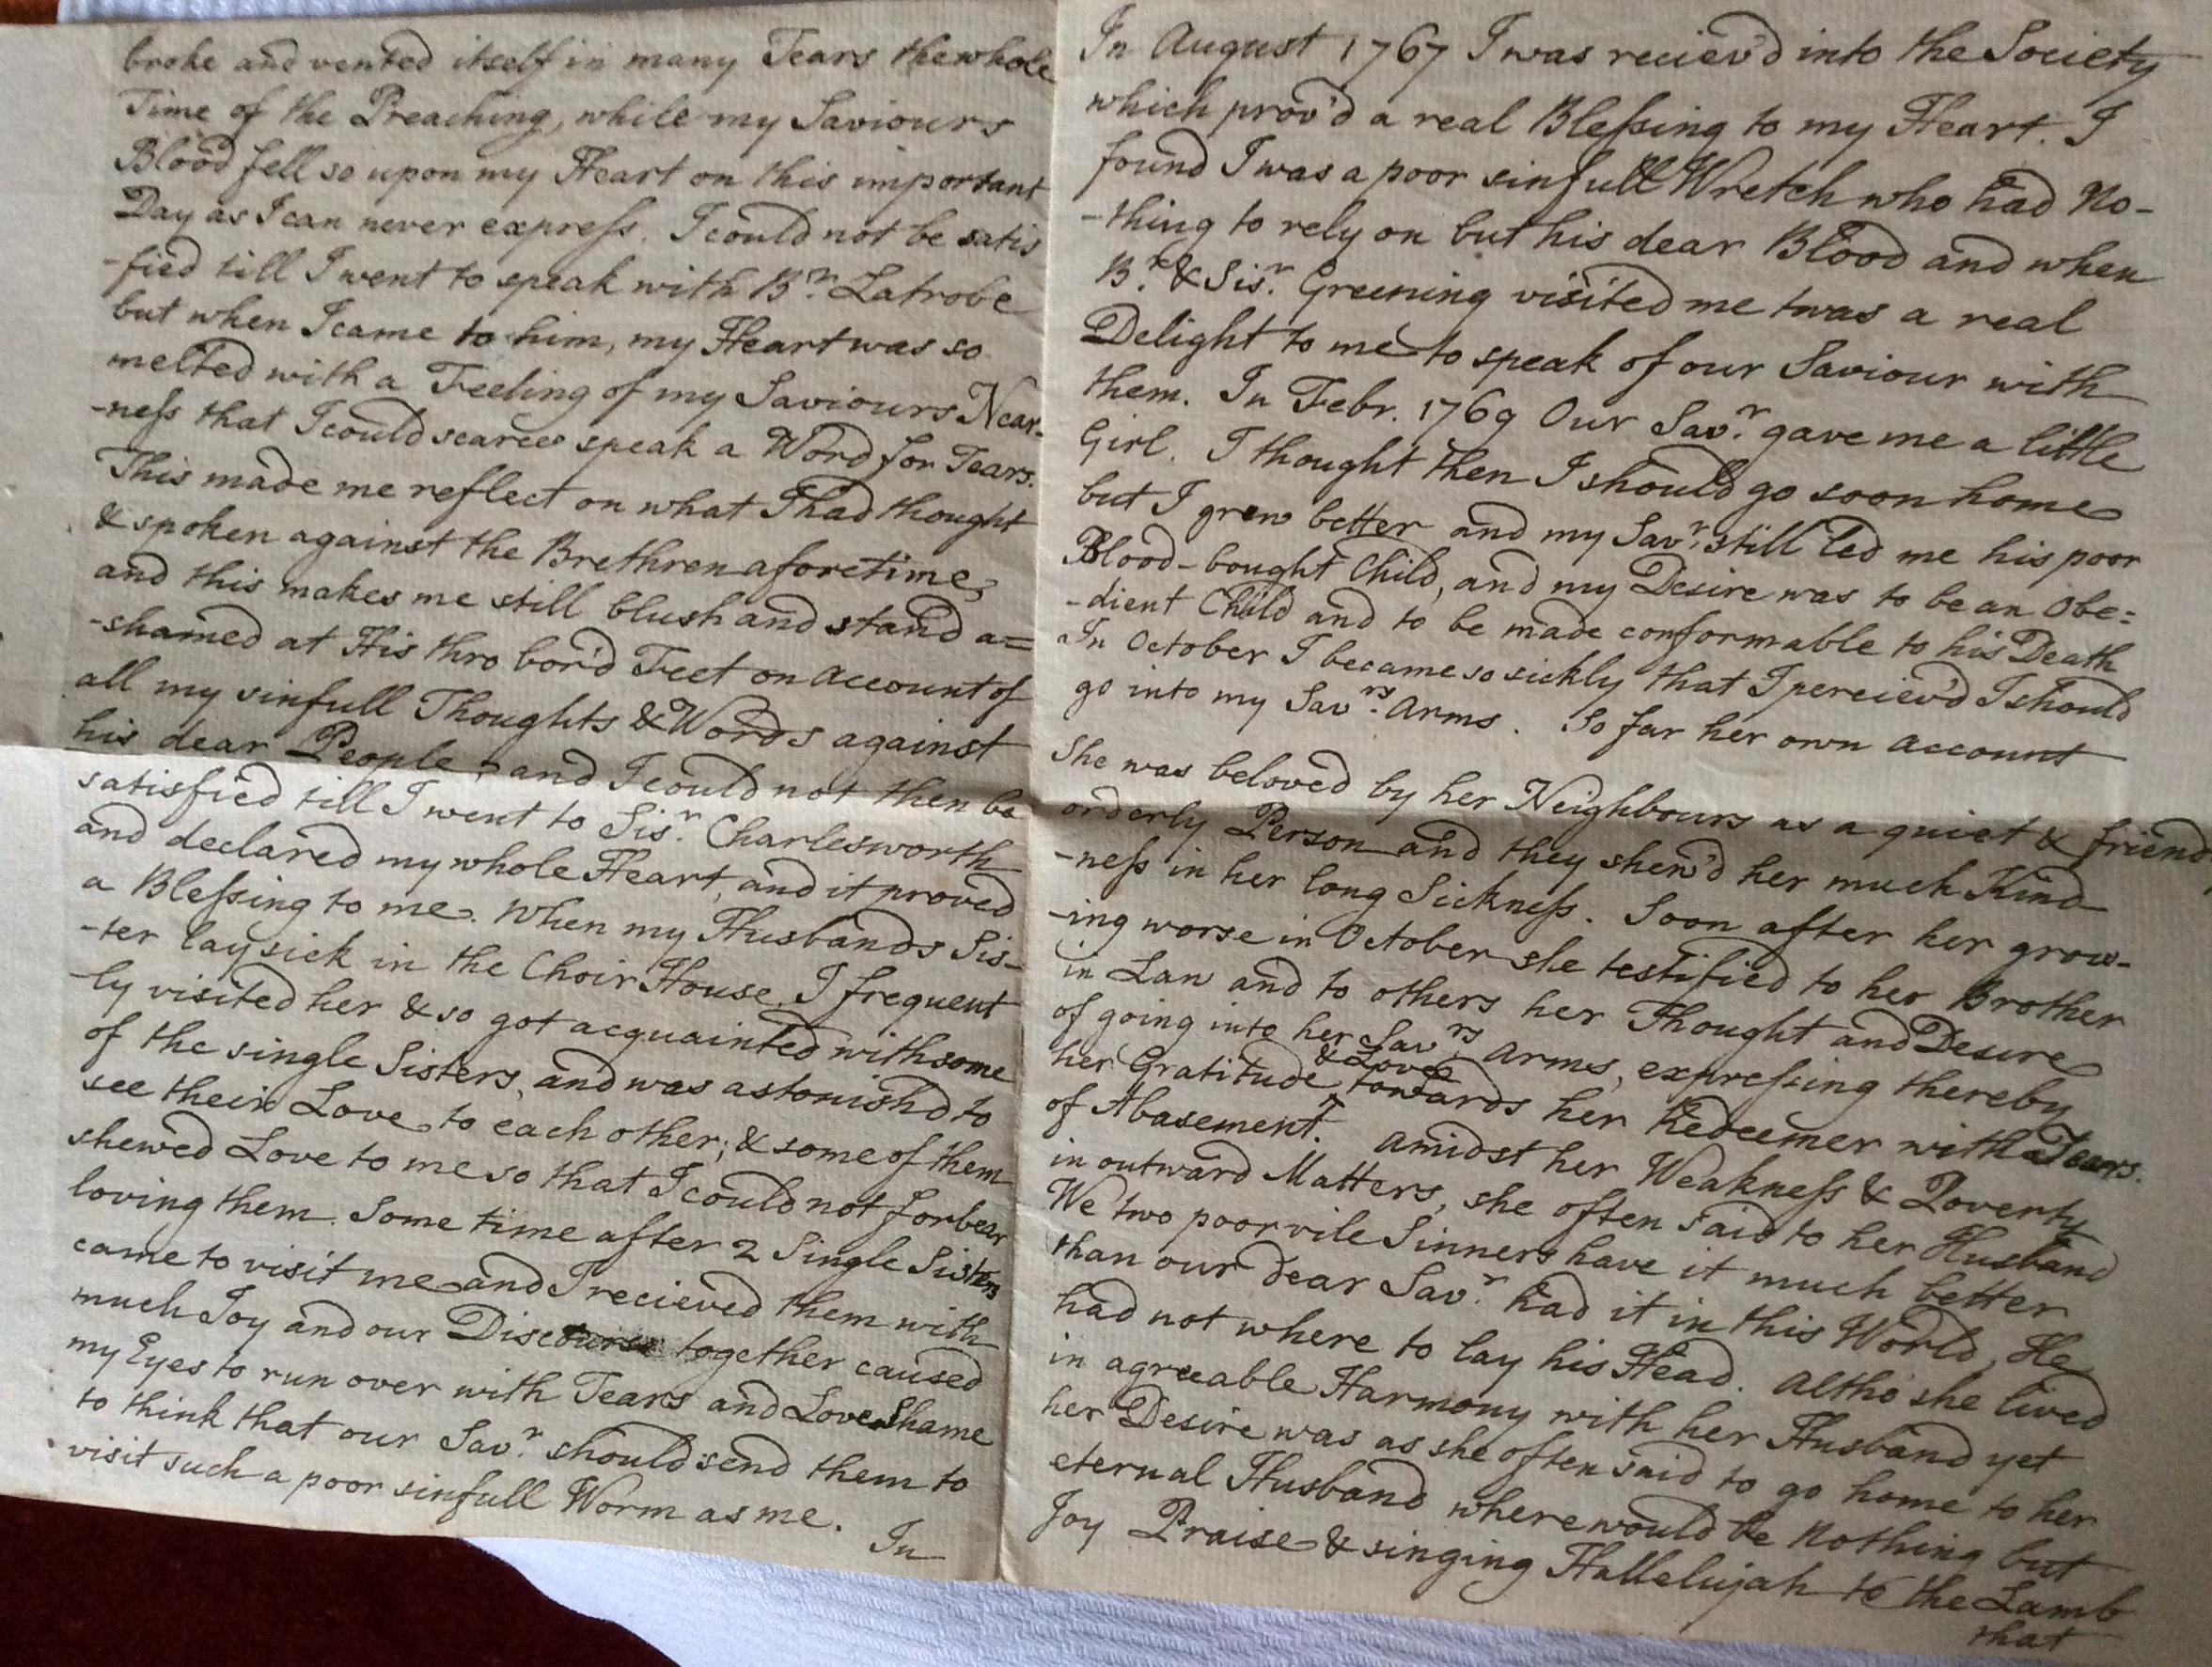 broke and vented itself in many Tears the whole
Time of the Preaching, while my Saviours
Blood fell so upon my Heart on this important
Day as I can never expreſs. I could not be satis
-fied till I went to speak with Br. Latrobe
but when I came to him, my Heart was so
melted with a Feeling of my Saviours Near-
-neſs that I could scarce speak a Word for Tears.
This made me reflect on what I had thought
& spoken against the Brethren aforetime,
and this makes me still blush and stand a=
-shamed at His thro bor'd Feet on Account of
all my sinfull Thoughts & Words against
his dear People, and I could not then be
satisfied till I went to Sisr. Charlesworth
and declared my whole Heart, and it proved
a Bleſsing to me. When my Husbands Sis-
-ter lay sick in the Choir House, I frequent
-ly visited her & so got acquainted with some
of the single Sisters, and was astonish'd to
see their Love to each other; & some of them
shewed Love to me so that I could not forbear
loving them. Some time after 2 Single Sisters
came to visit me and I recieved them with
much Joy and our Discourse together caused
my Eyes to run over with Tears and Love Shame
to think that our Savr. should send them to
visit such a poor sinfull Worm as me.
In
In August 1767 I was reciev'd into the Society
which prov'd a real Bleſsing to my Heart. I
found I was a poor sinfull Wretch who had No-
-thing to rely on but his dear Blood and when
Br. & Sisr. Greening visited me twas a real
Delight to me to speak of our Saviour with
them. In Febr. 1769 Our Savr. gave me a little
Girl. I thought then I should go soon home
but I grew better and my Savr. still led me his poor
Blood-bought Child, and my Desire was to be an Obe=
-dient Child and to be made conformable to his Death
In October I became so sickly that I perciev'd I should
go into my Savrs. Arms. So far her own Account
She was beloved by her Neighbours as a quiet & friend
orderly Person and they shew'd her much Kind
-neſs in her long Sickneſs. Soon after her grow-
-ing worse in October she testified to her Brother
in Law and to others her Thought and Desire
of going into her Savrs. Arms, expreſsing thereby
her Gratitude & Love towards her Redeemer with Tears
of Abasement. Amidst her Weakneſs & Poverty
in outward Matters, she often said to her Husband
We two poor vile Sinners have it much better
than our dear Savr. had it in this World, He
had not where to lay his Head. Altho she lived
in agreeable Harmony with her Husband yet
her Desire was as she often said to go home to her
eternal Husband where would be nothing but
Joy Praise & singing Hallelujah to the Lamb
that